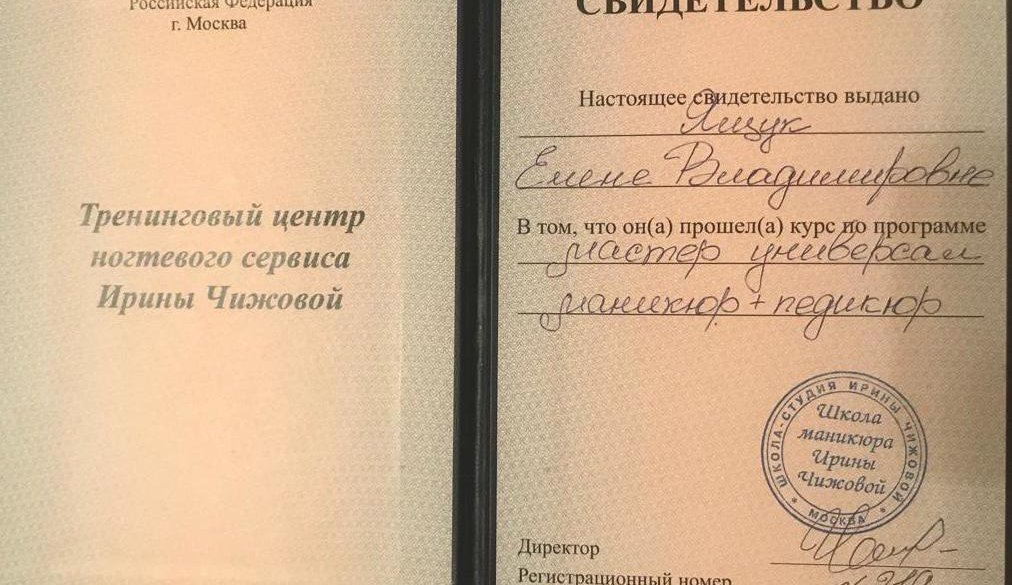 Российская Федерация
г. Москва
Тренинговый центр
ногтевого сервиса
Ирины Чижовой
СВИДЕТЕЛЬСТВО
Настоящее свидетельство выдано
Ящук
Елене Владимировне
В том, что он(а) прошел(а) курс по программе
мастер универсал
маникюр + педикюр
ШКОЛА-СТУДИЯ ИРИНЫ ЧИЖОВОЙ
* МОСКВА *
Школа
маникюра
Ирины
Чижовой
Директор
Регистрационный номер